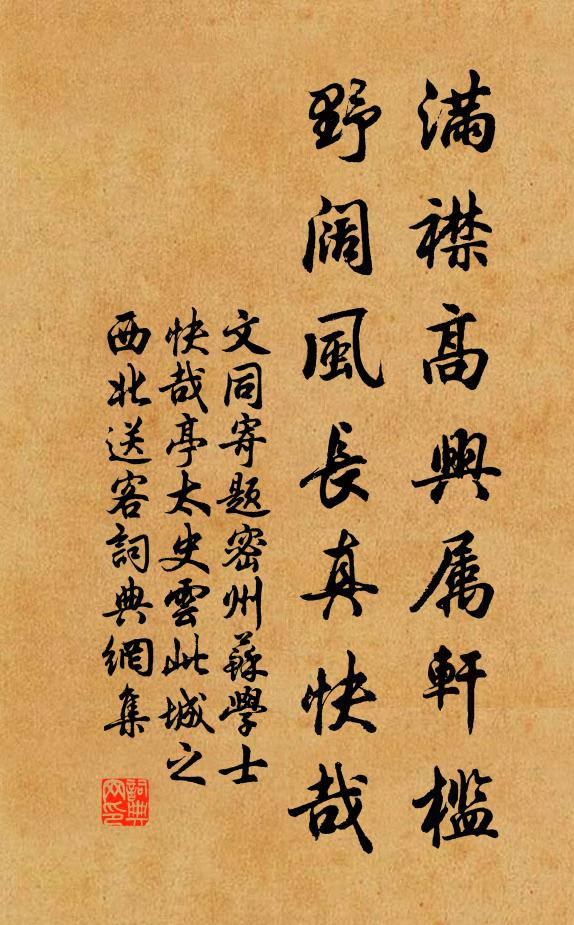 满襟高興属軒檻
野阔風長真快哉
文同寄題密州蘇學士
快哉亭太史雲此城之
西北送客詞典網集
詞典網印